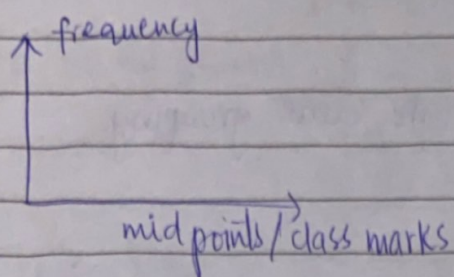 frequency
mid points/class marks